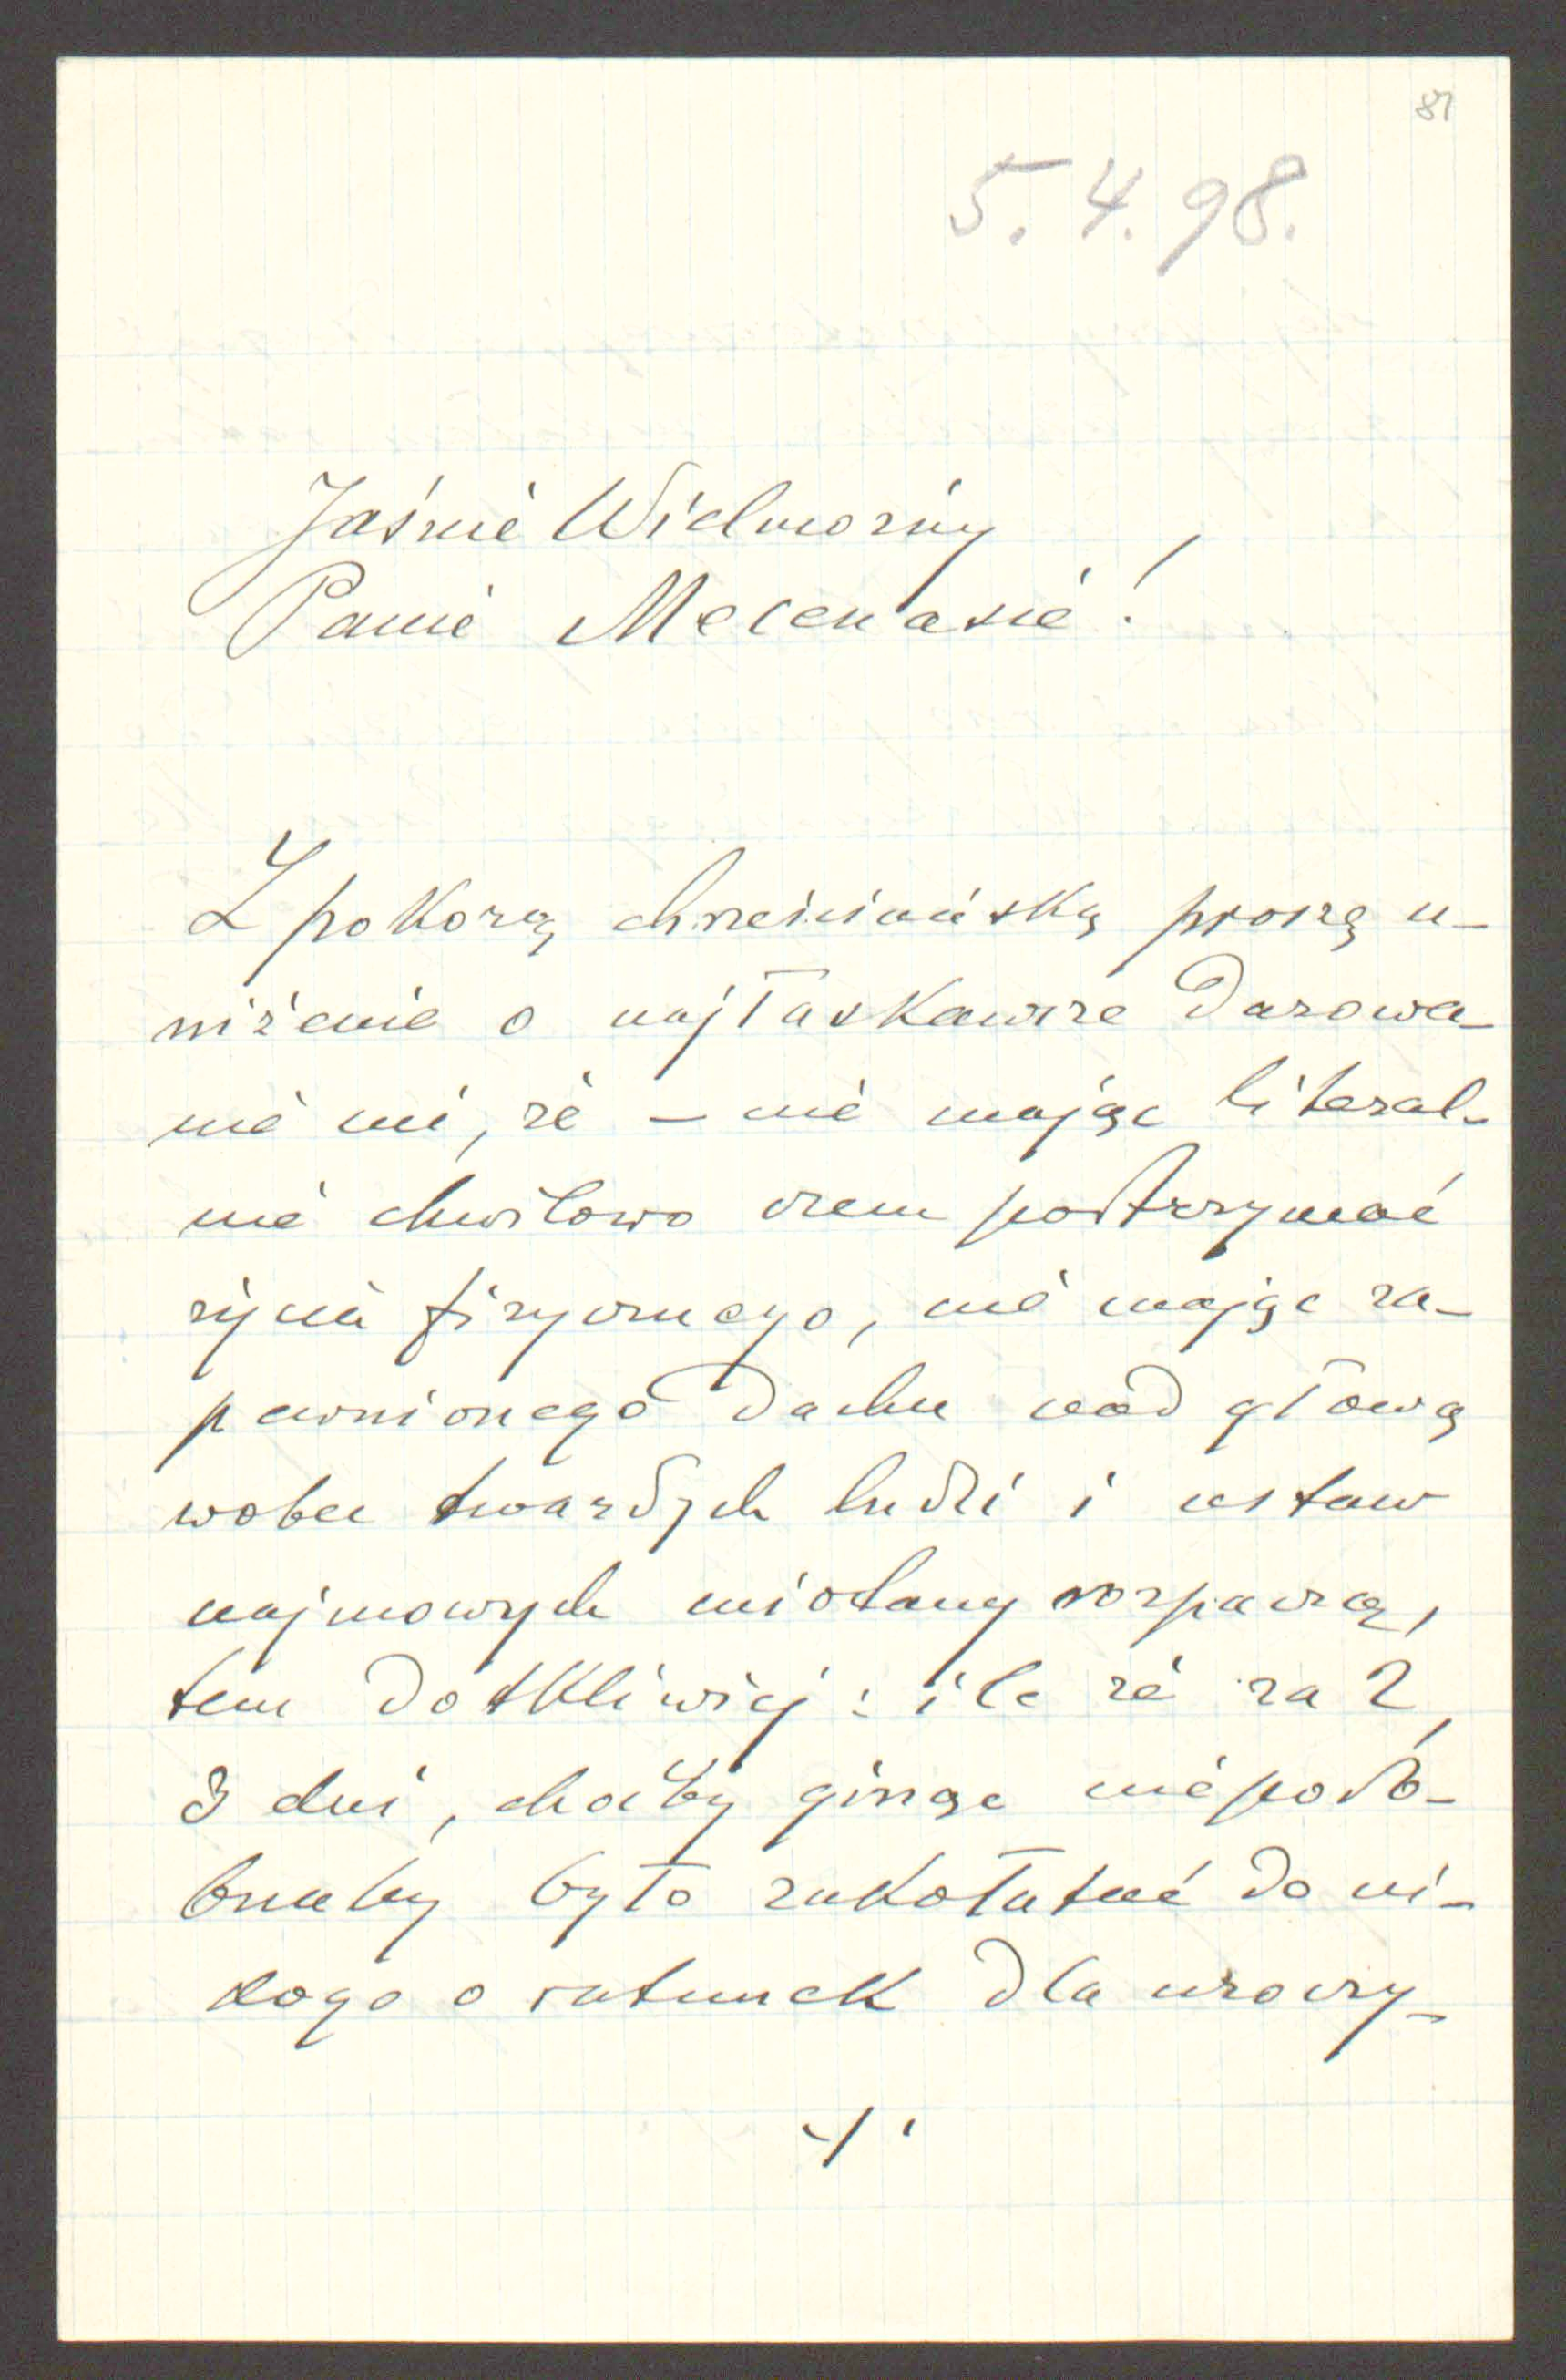 81
5.4.98.
Jaśnie Wielmożny
Panie Mecenasie!
Z pokorą chrześciańską proszę u-
niżenie o najłaskawsze darowa-
nie mi, że – nie mając literal-
nie chwilowo czem podtrzymać
życia fizycznego, nie mając za-
pewnionego dachu nad głową
wobec twardych ludzi i ustaw
najmowych miotany rozpaczą,
tem dotkliwiej: ile że za 2,
3 dni, choćby ginąc niepodo-
bnaby było zakołatać do ni-
kogo o ratunek dla uroczy-
./.